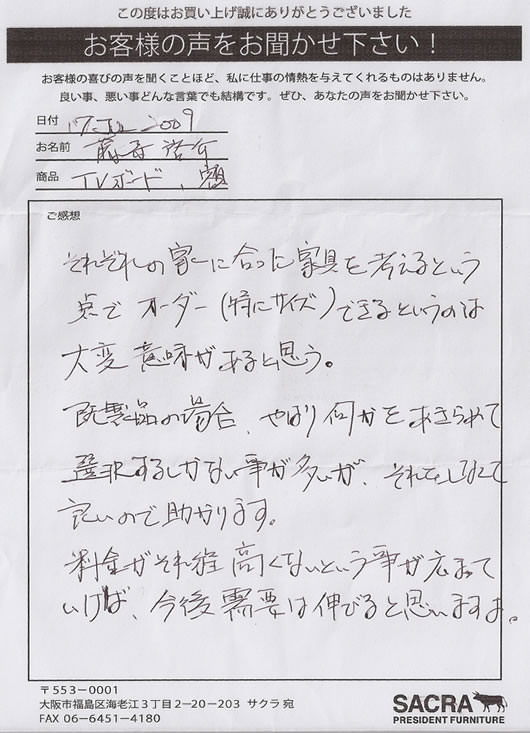 この度はお買い上げ誠にありがとうございました
お客様の声をお聞かせ下さい！
お客様の喜びの声を聞くことほど、私に仕事の情熱を与えてくれるものはありません。
良い事、悪い事どんな言葉でも結構です。ぜひ、あなたの声をお聞かせ下さい。
日付 17 JUL 2009
お名前
商品 TVボード、
ご感想
それぞれの家に合った家具を考えるという
点で オーダー(特にサイズ)できるというのは
大変意味があると思う。
既製品の場合、やはり何かをあきらめて
選択するしかない事が多いが、それをしなくて
良いので助かります。
料金がそれ程高くないという事が広まって
いけば、今後需要は伸びると思いますよ。
〒553-0001
大阪市福島区海老江3丁目2-20-203 サクラ宛
FAX 06-6451-4180
SACRA
PRESIDENT FURNITURE